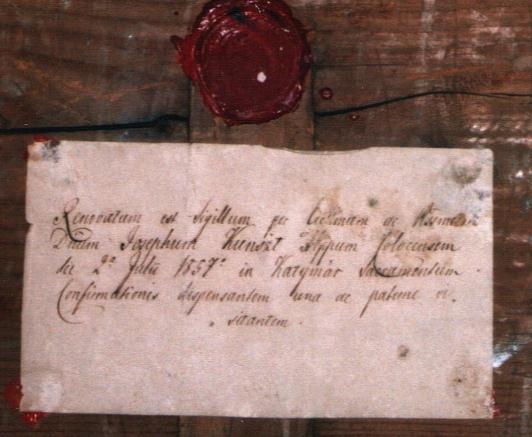 Renovatum est Sigillum per Excimum ac Rsmum
Dnum Josephum Kunszt AEppum Colocensem
die 2ª Julii 1857º in Katymár Sacramentum
Confirmationis dispensantem una ac paterne vi-
sitantem.